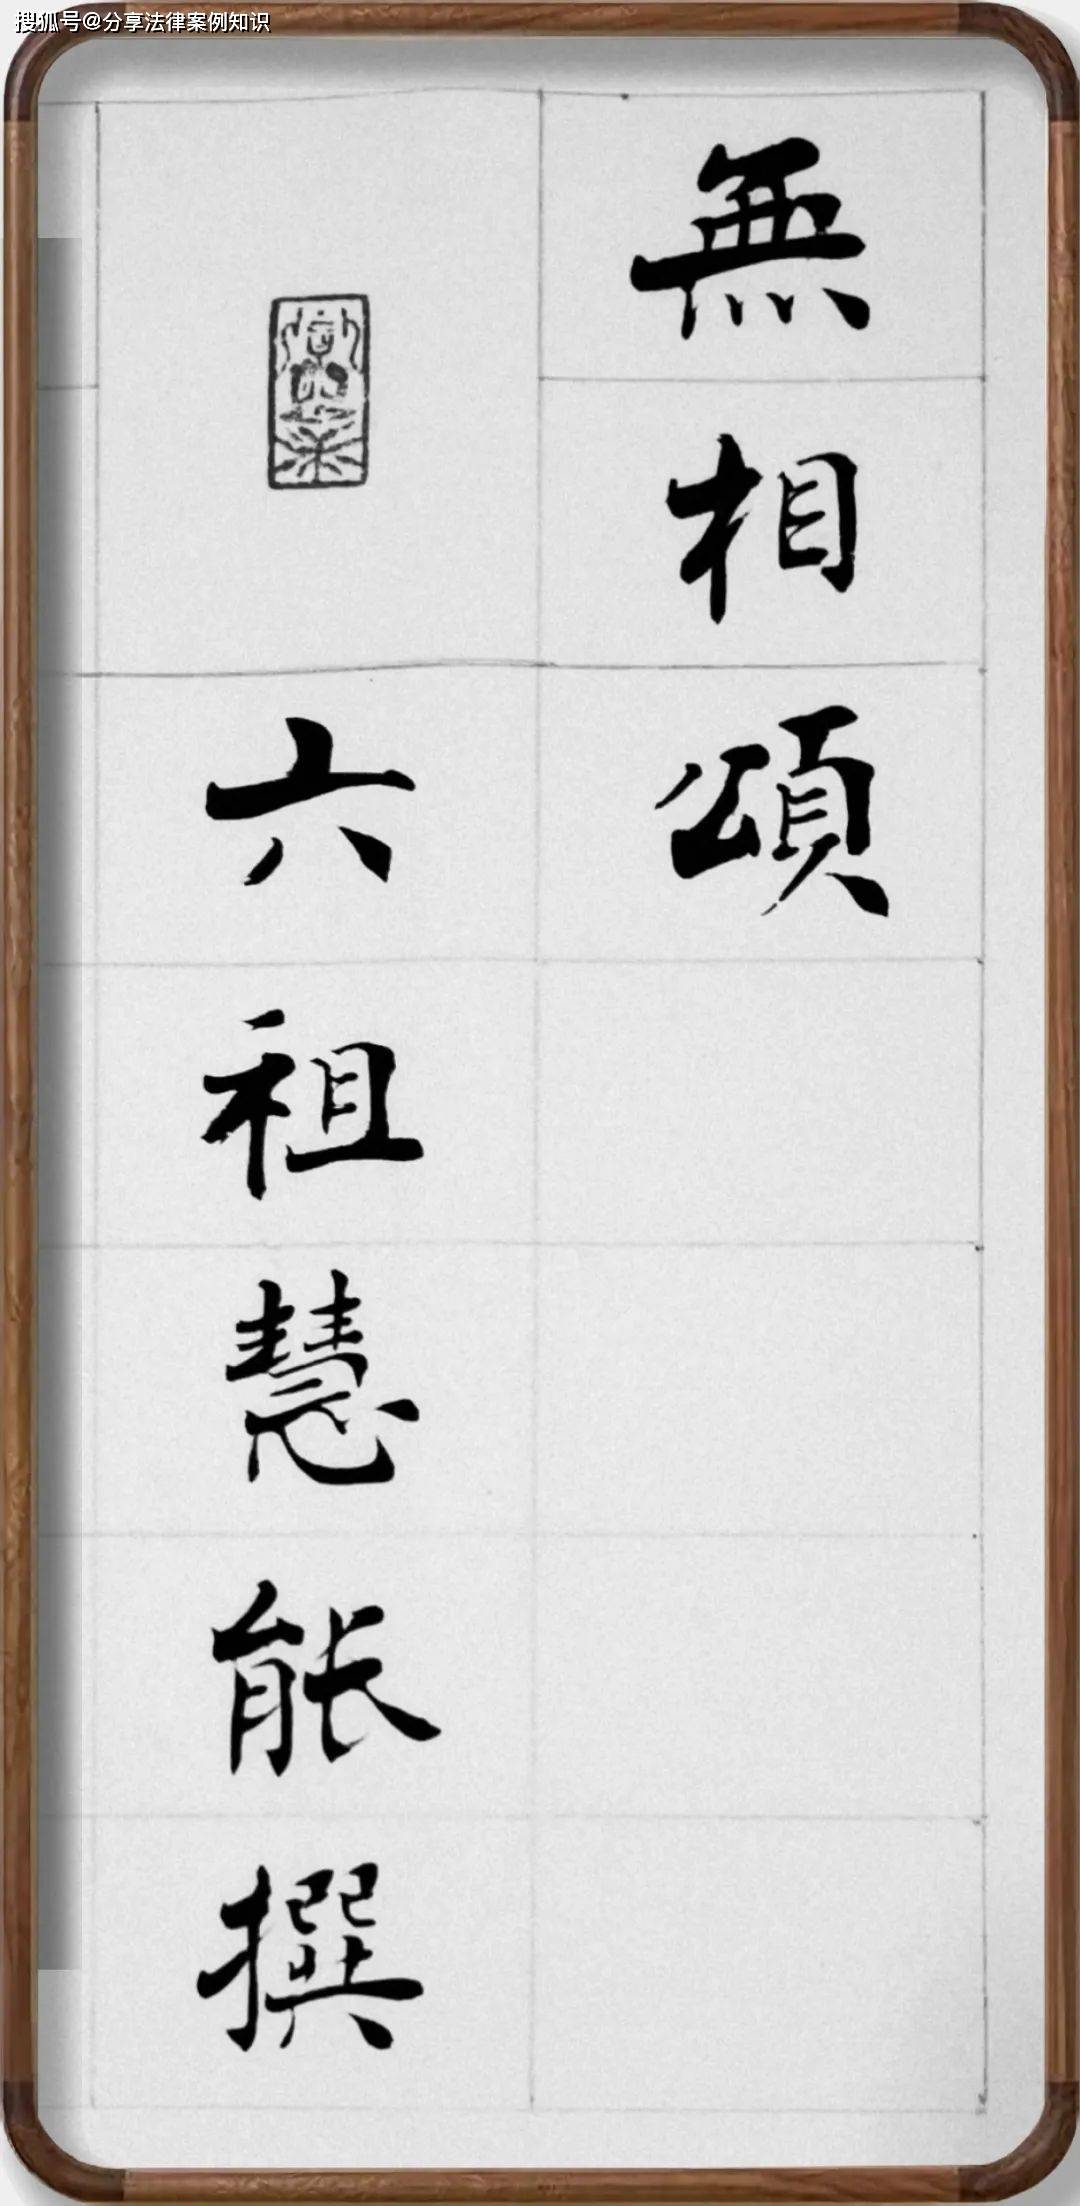 搜狐号@分享法律案例知识
無相頌
六祖慧能撰